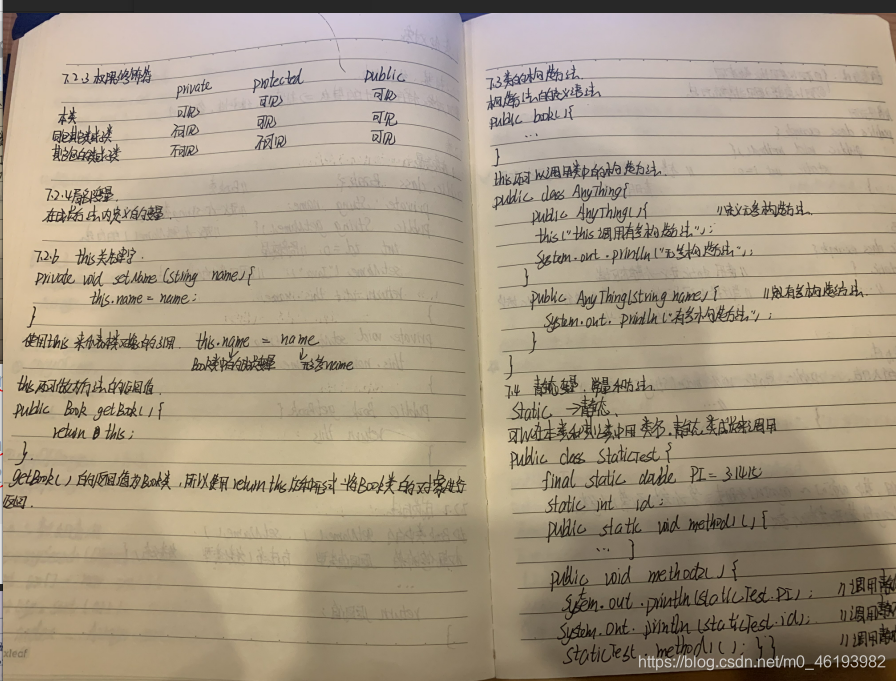 7.2.3 权限修饰符
private protected public
本类 可见 可见 可见
同包其他类或子类 不可见 可见 可见
其他包的类或子类 不可见 不可见 可见
7.2.4 局部变量.
在成员方法内定义的变量
7.2.6 this关键字.
private void setName (String name){
this.name = name;
}
使用this 来代表本类对象的引用. this.name = name
Book类中的成员变量 形参name
this还可做方法的返回值.
public Book getBook(){
return this;
}.
getBook()的返回值为Book类,所以使用return this这种形式将Book类的对象进行
返回.
7.3类的构造方法.
构造方法的定义语法
public book(){
...
}
this还可以调用类中的构造方法.
public class AnyThing{
public AnyThing(){ //定义无参构造方法.
this("this调用有参构造方法");
System.out.println("无参构造方法");
}
public AnyThing(String name){ //定义有参构造方法.
System.out.println("有参构造方法");
}
}
7.4 静态变量、常量和方法.
Static →静态.
可以在本类和其他类中用 类名.静态类成员来调用
public class StaticTest {
final static double PI = 3.1415;
static int id;
public static void method1(){
... }
public void method2(){
System.out.println(StaticTest.PI); //调用静态
System.out.println(StaticTest.id); //调用静态
StaticTest.method1(); }} //调用静态
xleaf
https://blog.csdn.net/m0_46193982